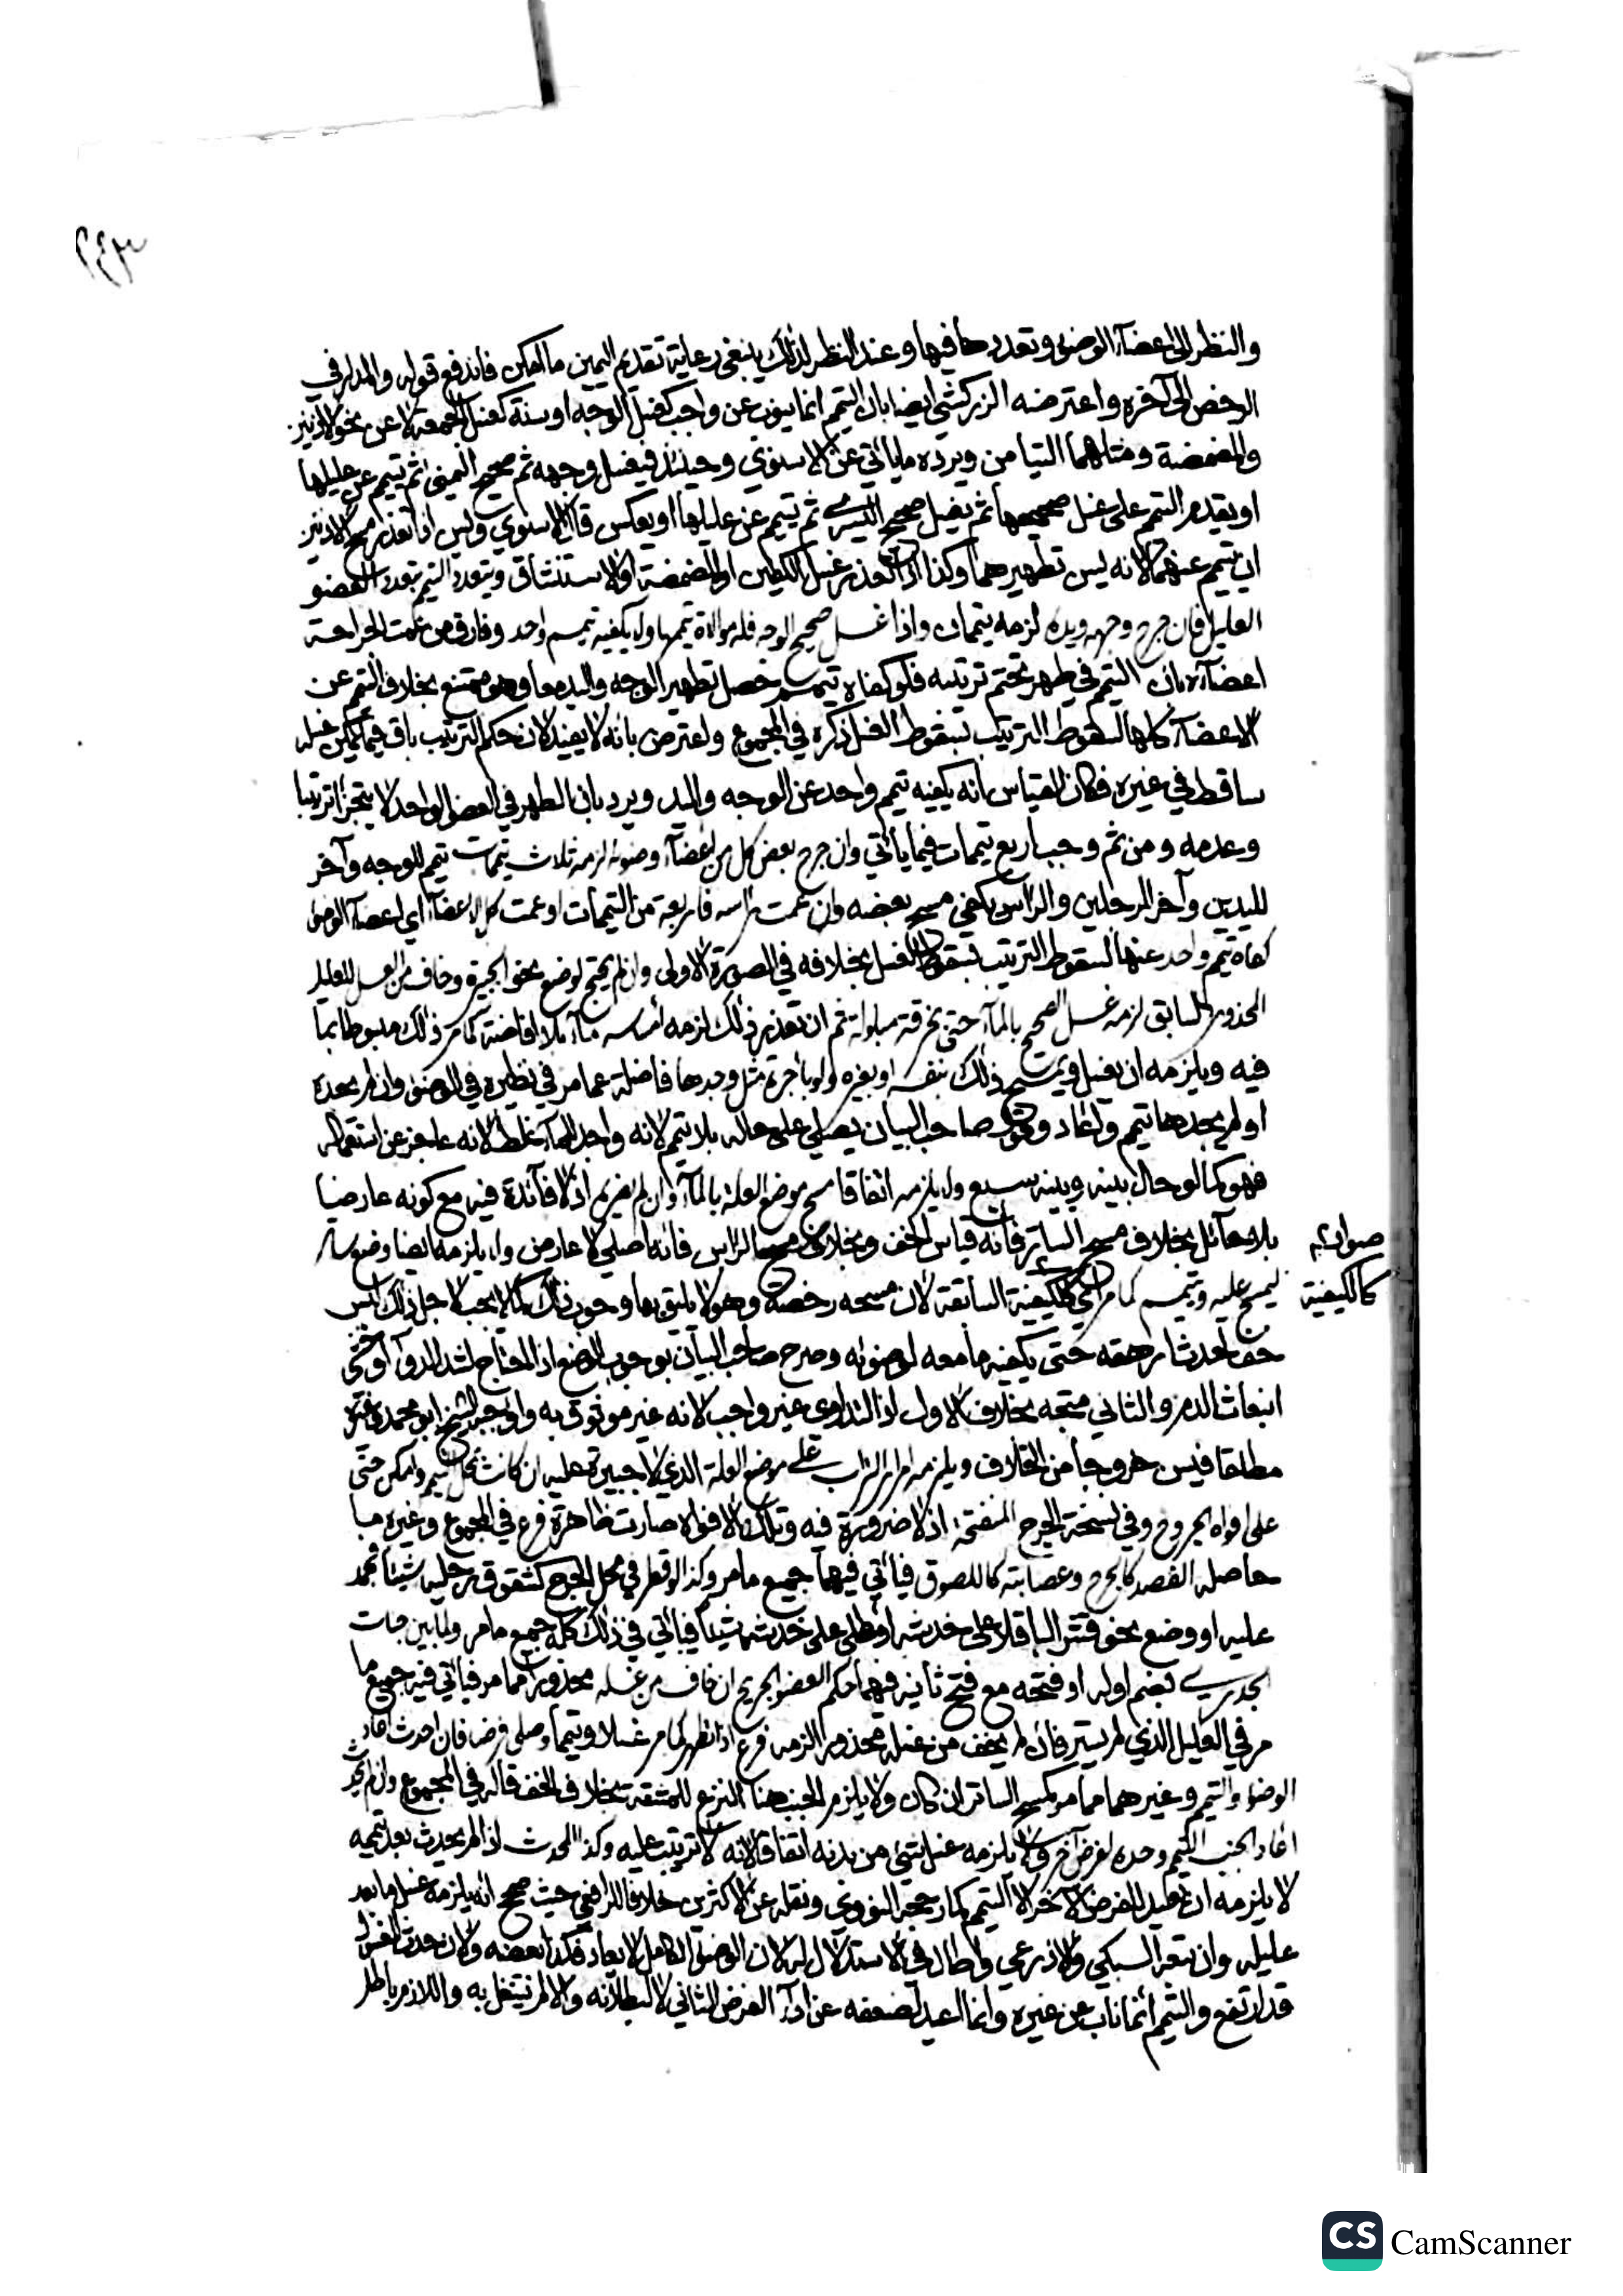 ٢٤٣
والنظر الى اعضاء الوضوء وتعددها فيها وعند النظر لذلك ينبغي رعاية تقديم اليمين ما امكن فاندفع قوله والمدار في
الرخص الى آخره واعترضه الزركشي ايضا بان التيمم انما ينوب عن واجب كغسل الوجه او سنة كغسل الجمعة لا عن نحو الاذنين
والمضمضة ومثلهما التيامن ويرده ما ياتي عن الاسنوي وحينئذ فيغسل وجهه ثم صحيح اليمنى ثم يتيمم عن عليلها
او يقدم التيمم على غسل صحيحها ثم يغسل صحيح اليسرى ثم تيمم عن عليلها او يعكس قال الاسنوي وليس اذا تعذر مسح الاذنين
ان يتيمم عنهما لانه ليس تطهيرهما وكذا اذا تعذر غسل الكفين او المضمضة او الاستنشاق ويتعدد التيمم بتعدد العضو
العليل فان جرح وجهه ويده لزمه تيممان واذا غسل صحيح الوجه فله موالاة تيممها ولم يكفيه تيمم واحد وفارق من عمت الجراحة
اعضاءه بان التيمم في طهر تحتم ترتيبه فلو كفاه تيمم حصل تطهير الوجه واليد معا وهو ممتنع بخلاف التيمم عن
الاعضاء كلها لسقوط الترتيب بسقوط الغسل ذكره في المجموع واعترض بانه لا يفيد لان حكم الترتيب باق فيما يمكن غسله
ساقط في غيره فكان القياس انه يكفيه تيمم واحد عن الوجه واليد ويرد بان الطهر في العضو الواحد لا يتجزأ ترتيبا
وعدمه ومن ثم وجب اربع تيممات فيما ياتي وان جرح بعض كل من اعضاء وضوئه لزمه ثلاث تيممات تيمم للوجه وآخر
لليدين وآخر للرجلين والراس يكفي مسح بعضه وان عمت راسه فاربعة من التيممات او عمت كل الاعضاء اي اعضاء الوضوء
كفاه تيمم واحد عنها لسقوط الترتيب بسقوط الغسل بخلافه في الصورة الاولى وان لم يحتج لوضع نحو الجبيرة وخاف من الغسل للعليل
المحذور السابق لزمه غسل الصحيح بالماء حتى بخرقة مبلولة ثم ان تعذر ذلك لزمه امساسه ماء بلا افاضة كما مر ذلك مبسوطا بما
فيه ويلزمه ان يغسل ويمسح ذلك بنفسه او بغيره ولو باجرة مثل وجدها فاضلة عما مر في نظيره في الوضوء وان لم يجده
او لم يجدها تيمم واعاد وقول صاحب البيان يصلي على حاله بلا تيمم لانه واجد الماء غلط لانه عاجز عن استعماله
فهو كما لو حال بينه وبينه سبع ولم يلزمه اتفاقا مسح موضع العلة بالماء وان لم يضره اذ لا فائدة فيه مع كونه عارضيا
بلا حائل بخلاف مسح الساتر فانه قياس الخف وبخلاف مسح الراس فانه اصلي لا عارض ولم يلزمه ايضا وضع ساتر
صوابه
ليمسح عليه ويتيمم كما مر اي كالكيفية السابقة لان مسحه رخصة وهو لا يليق بها وجوب ذلك كما لا يجب لاجل ذلك لبس
كالكيفية
خف لحدث ارهقه حتى يكفيه ما معه لوضوئه وصرح صاحب البيان بوجوب الوضع اذا احتاج لشد الدواء او خشي
انبعاث الدم والثاني متجه بخلاف الاول اذ التداوي غير واجب لانه غير موثوق به واوجبه الشيخ ابو محمد وغيره
مطلقا فيسن خروجا من الخلاف ويلزمه امرار التراب على موضع العلة الذي لا جبيرة عليه ان كانت بمحل التيمم وامكن حتى
على افواه الجروح وفي نسخة الجرح المنفتحة اذ لا ضرورة فيه وتلك الافواه صارت ظاهرة فرع في المجموع وغيره ما
حاصله الفصد كالجرح وعصابته كاللصوق فياتي فيها جميع ما مر وكذا لو قطر في محل الجرح كشقوق رجليه شيئا فجمد
عليه او وضع نحو قشر الباقلا على خدشه او طلى على خدشه شيئا فياتي في ذلك كله جميع ما مر ولما بين حبات
الجدري بضم اوله او فتحه مع فتح ثانيه فيهما حكم العضو الجريح ان خاف من غسله محذورا مما مر فياتي فيه جميع ما
مر في العليل الذي لم يستر فان لم يخف من غسله محذورا لزمه فرع اذا تطهر كما مر غسلا وتيمما وصلى فرضا فان احدث اعاد
الوضوء والتيمم وغيرهما مما مر كمسح الساتر ان كان ولا يلزم الجنب هنا النزع للمشقة بخلاف الخف قاله في المجموع وان لم يحدث
اعاد الجنب التيمم وحده لفرض آخر ولا يلزمه غسل شيء من بدنه اتفاقا لانه لا ترتيب عليه وكذا المحدث اذا لم يحدث بعد تيممه
لا يلزمه ان يعيد للفرض الآخر الا التيمم كما رجحه النووي ونقله عن الاكثرين خلافا للرافعي حيث صحح انه يلزمه غسل ما بعد
عليله وان تبعه السبكي والاذرعي واطال في الاستدلال له لان الوضوء الكامل لا يعاد فكذا بعضه ولان حدث المغسول
قد ارتفع والتيمم انما ناب عن غيره وانما اعيد لضعفه عن اداء الفرض الثاني لا لبطلانه والا لم يتنفل به واللازم باطل
CS CamScanner